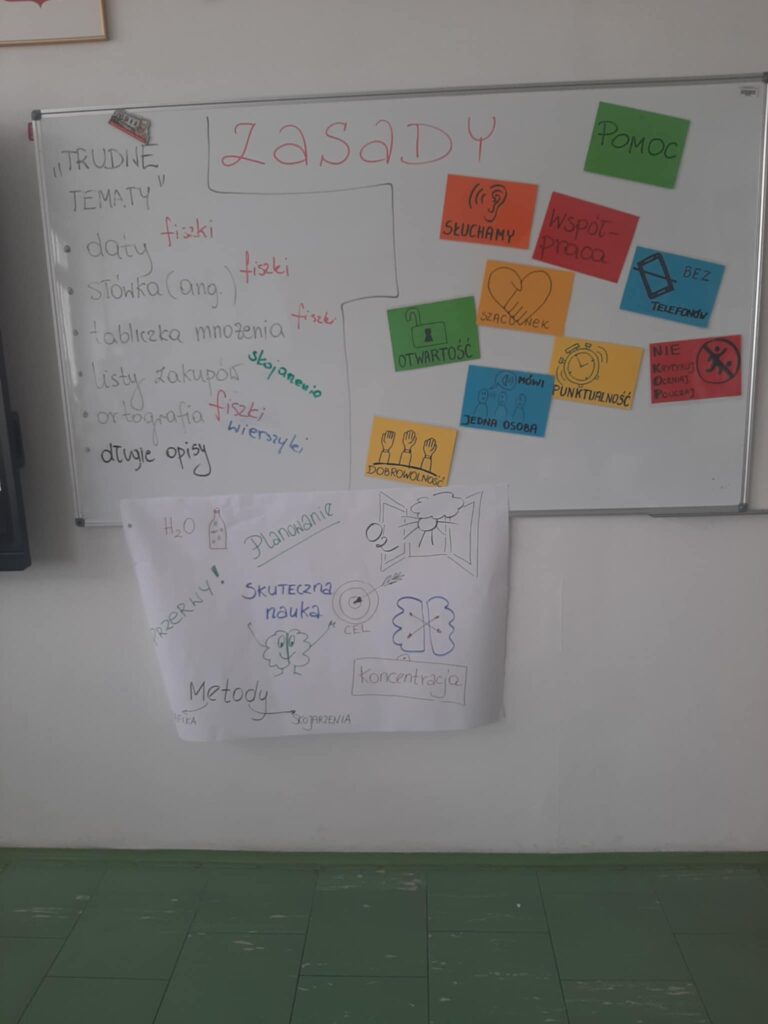 „TRUDNE
TEMATY"
• daty fiszki
• słówka (ang.) fiszki
• tabliczka mnożenia fiszki
• listy zakupów skojarzenia
• ortografia fiszki
wierszyki
• długie opisy
ZASADY
POMOC
SŁUCHAMY
WSPÓŁ-
praca
BEZ
TELEFONÓW
SZACUNEK
OTWARTOŚĆ
PUNKTUALNOŚĆ
NIE
KRYTYKUJ
OCENIAJ
POUCZAJ
MÓWI
JEDNA OSOBA
DOBROWOLNOŚĆ
H₂O
Planowanie
O₂
PRZERWY!
SKUTECZNA
nauka
CEL
Koncentracja
Metody
SKOJARZENIA